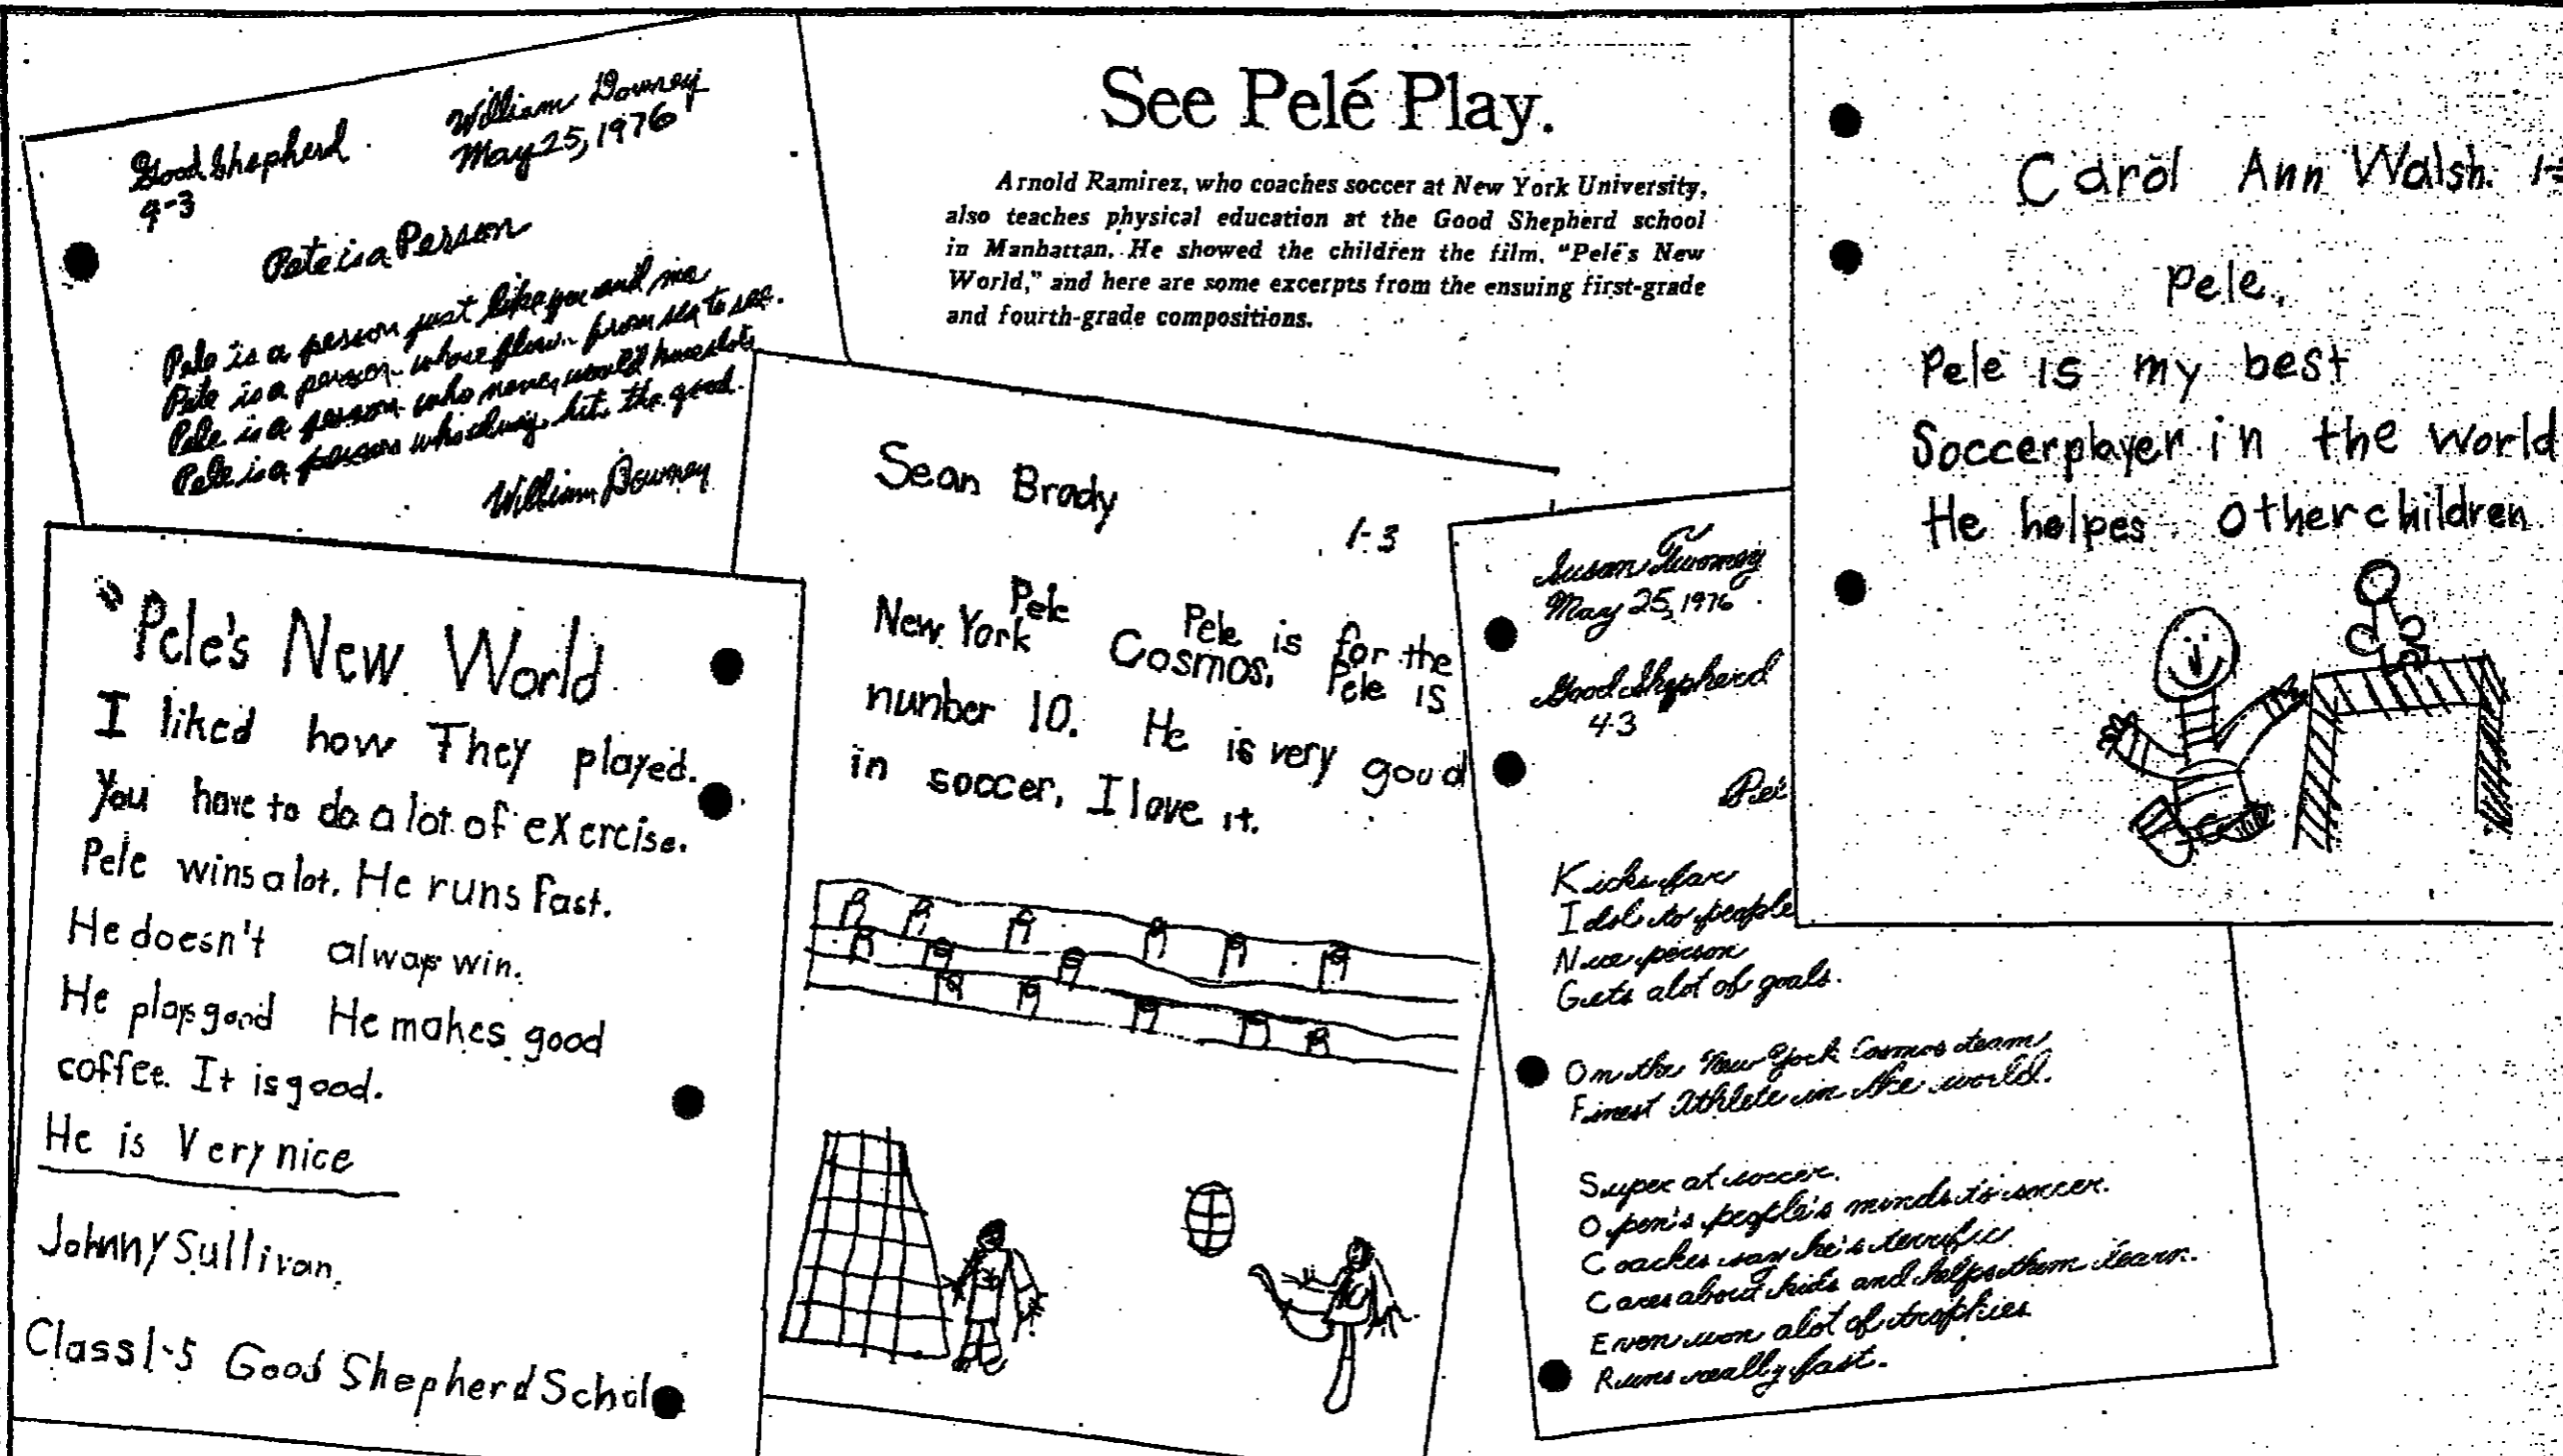 Good Shepherd
4-3
William Downey
May 25, 1976
Pele is a Person
Pele is a person just like you and me
Pele is a person whose flown from sea to sea.
Pele is a person who never would have lots
Pele is a person who always hits the
William Downey
See Pelé Play.
Arnold Ramirez, who coaches soccer at New York University,
also teaches physical education at the Good Shepherd school
in Manhattan. He showed the children the film, "Pelé's New
World," and here are some excerpts from the ensuing first-grade
and fourth-grade compositions.
"Pele's New World
I liked how They played.
You have to do a lot of exercise.
Pele wins a lot. He runs fast.
He doesn't always win.
He plays good He makes good
coffee. It is good.
He is Very nice
Johnny Sullivan.
Class 1-5 Good Shepherd Schol
Sean Brady
1-3
Pele
New York Cosmos. Pele is for the
nunber 10. Pele is
He is very good
in soccer, I love it.
Susan Twomey
May 25, 1976
Good Shepherd
4-3
Kicks far
Idol to people
Nice person
Gets alot of goals.
On the New York Cosmos team
Finest Athlete in the world.
Super at soccer.
Open's people's minds to soccer.
Coaches say he's terrific
Cares about kids and helps them learn.
Even won alot of trophies
Runs really fast.
Carol Ann Walsh. 1-
Pele.
Pele is my best
Soccerplayer in the world
He helpes other children.